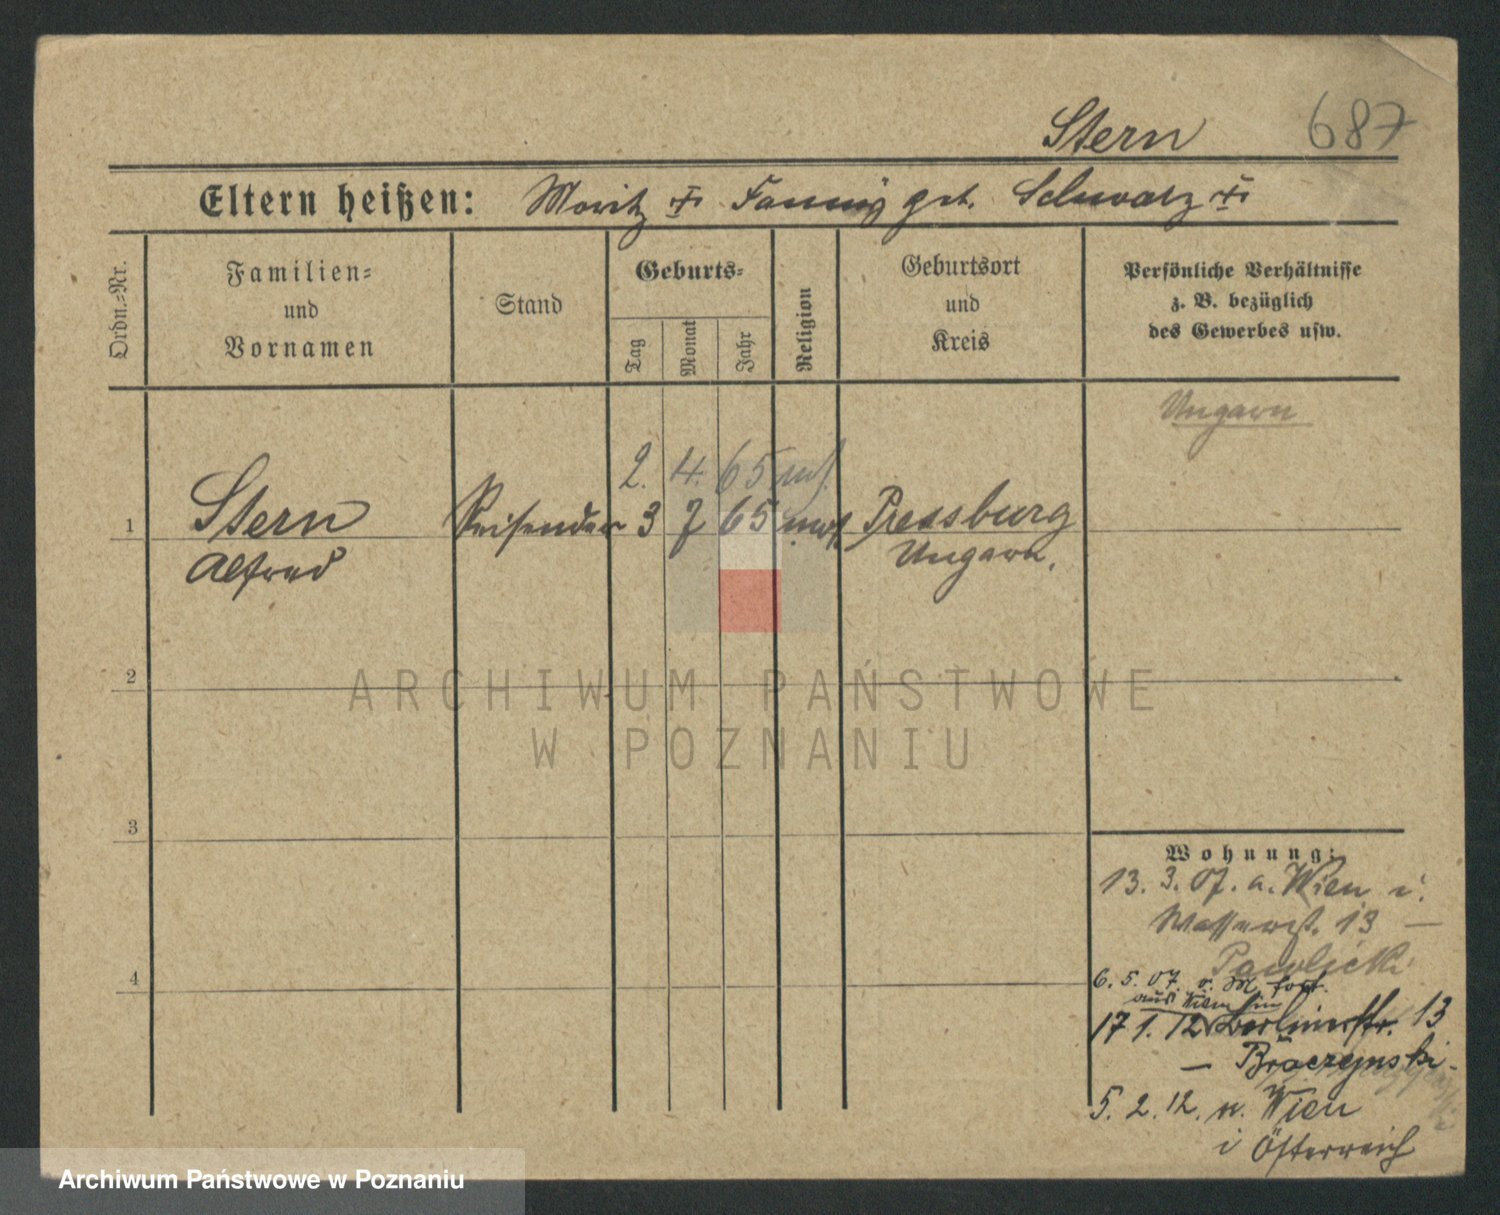 Stern 687
Eltern heißen: Moritz Fanny geb. Schwarz
Ordn.-Nr.
Familien-
und
Vornamen
Stand
Geburts-
Tag
Monat
Jahr
Religion
Geburtsort
und
Kreis
Persönliche Verhältnisse
z. B. bezüglich
des Gewerbes usw.
Ungarn
2. 4. 65 mos.
1 Stern Reisender 3 7 65 mos. Pressburg
Alfred Ungarn.
2
3
4
Wohnung:
13. 3. 07. a. Wien i.
Wasserst. 13 —
Pawlicki
6. 5. 07. fort.
aus Wien in
17 1. 12 Berlinerstr. 13
—
5. 2. 12. n. Wien
i Österreich
ARCHIWUM PAŃSTWOWE
W POZNANIU
Archiwum Państwowe w Poznaniu